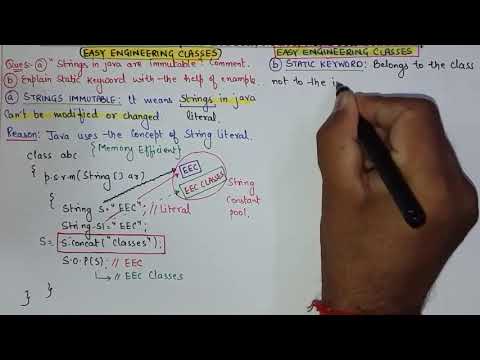 EASY ENGINEERING CLASSES
Ques:- (a) "Strings in java are immutable" Comment.
(b) Explain Static Keyword with the help of example.
(a) STRINGS IMMUTABLE: It means Strings in java
Can't be modified or changed literal.
Reason: Java uses the concept of String literal.
class abc {Memory Efficient}
{ p.s.v.m (String [] ar)
{
String S = "EEC"; // Literal
String S1 = "EEC";
S = S.concat("Classes");
S.O.P(S); // EEC
// EEC Classes
} }
EEC
EEC CLASSES
String
Constant
pool.
EASY ENGINEERING CLASSES
(b) STATIC KEYWORD: Belongs to the class
not to the i